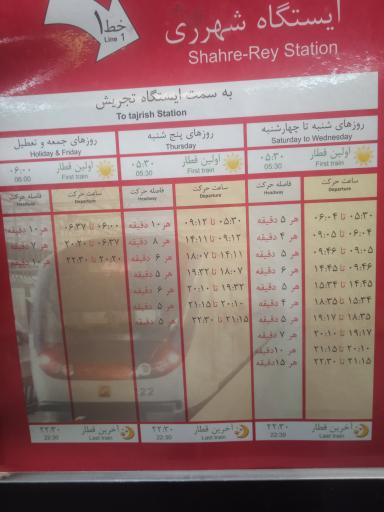 خط ۱
Line 1
ایستگاه شهرری
Shahre-Rey Station
به سمت ایستگاه تجریش
To tajrish Station
روزهای شنبه تا چهارشنبه
Saturday to Wednesday
اولین قطار ۰۵:۳۰
First train 05:30
ساعت حرکت فاصله حرکت
Departure Headway
۰۵:۳۰ تا ۰۶:۰۴ هر ۵ دقیقه
۰۶:۰۴ تا ۰۹:۰۵ هر ۴ دقیقه
۰۹:۰۵ تا ۰۹:۴۶ هر ۵ دقیقه
۰۹:۴۶ تا ۱۴:۴۵ هر ۶ دقیقه
۱۴:۴۵ تا ۱۵:۳۴ هر ۵ دقیقه
۱۵:۳۴ تا ۱۸:۳۵ هر ۴ دقیقه
۱۸:۳۵ تا ۱۹:۱۷ هر ۵ دقیقه
۱۹:۱۷ تا ۲۰:۱۰ هر ۷ دقیقه
۲۰:۱۰ تا ۲۱:۱۵ هر ۱۰ دقیقه
۲۱:۱۵ تا ۲۲:۳۰ هر ۱۵ دقیقه
آخرین قطار ۲۲:۳۰
Last train 22:30
روزهای پنج شنبه
Thursday
اولین قطار ۰۵:۳۰
First train 05:30
ساعت حرکت فاصله حرکت
Departure Headway
۰۵:۳۰ تا ۰۹:۱۲ هر ۱۰ دقیقه
۰۹:۱۲ تا ۱۴:۱۱ هر ۸ دقیقه
۱۴:۱۱ تا ۱۸:۰۷ هر ۶ دقیقه
۱۸:۰۷ تا ۱۹:۳۲ هر ۵ دقیقه
۱۹:۳۲ تا ۲۰:۱۰ هر ۶ دقیقه
۲۰:۱۰ تا ۲۱:۱۵ هر ۸ دقیقه
۲۱:۱۵ تا ۲۲:۳۰ هر ۵ دقیقه
آخرین قطار ۲۲:۳۰
Last train 22:30
روزهای جمعه و تعطیل
Holiday & Friday
اولین قطار ۰۶:۰۰
First train 06:00
ساعت حرکت فاصله حرکت
Departure Headway
۰۶:۰۰ تا ۰۶:۳۷ هر ۱۰ دقیقه
۰۶:۳۷ تا ۲۰:۲۰ هر ۷ دقیقه
۲۰:۲۰ تا ۲۲:۳۰ هر ۱۰ دقیقه
آخرین قطار ۲۲:۳۰
Last train 22:30